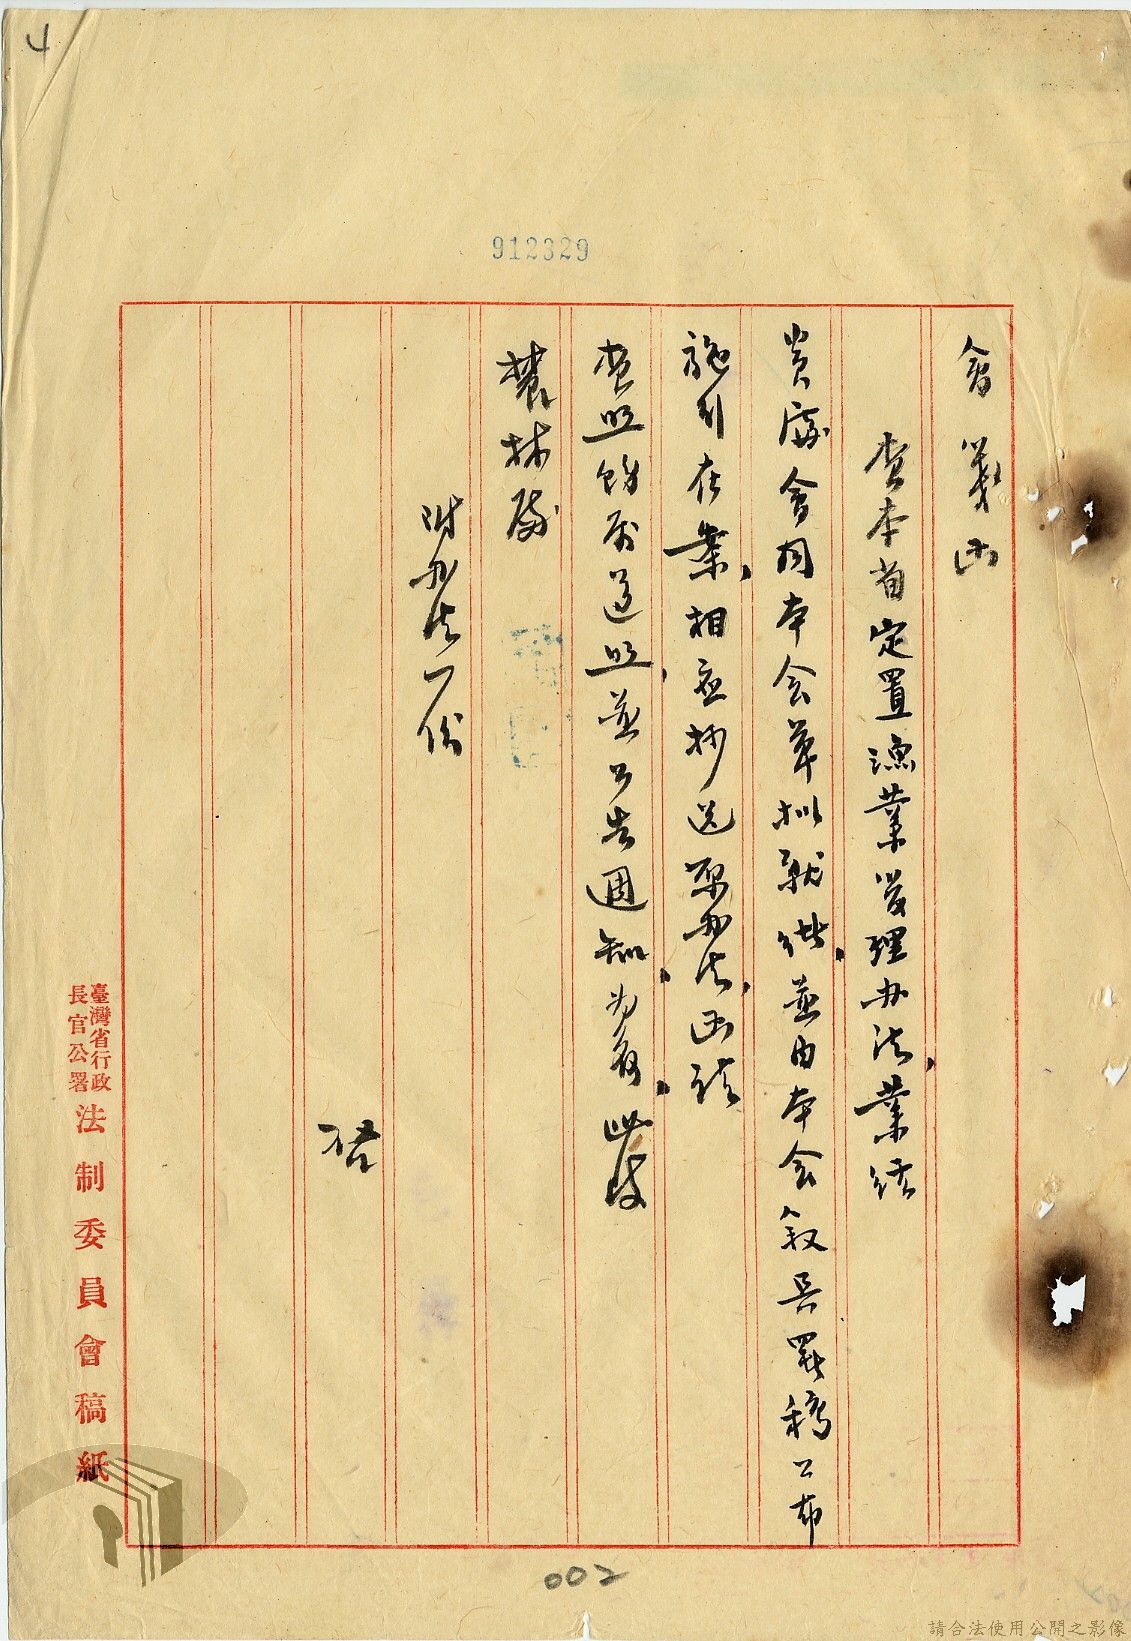 4
912329
會箋函
查本省定置漁業管理办法，業經
貴處會同本会草拟就绪，並由本会叙呈署稿公布
施行在案，相应抄送原办法，函請
查照飭屬遵照，並公告週知，为荷。此致
農林處
附办法一份
啓
臺灣省行政長官公署法制委員會稿紙
002
請合法使用公開之影像